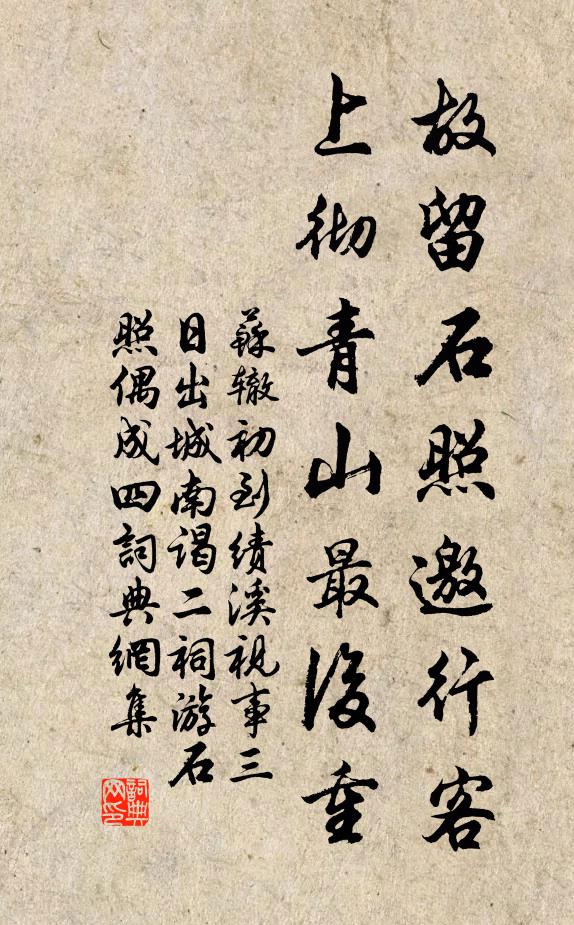 故留石照邀行客
上彻青山最後重
蘇辙初到绩溪視事三
日出城南谒二祠游石
照偶成四詞典網集
詞典網印